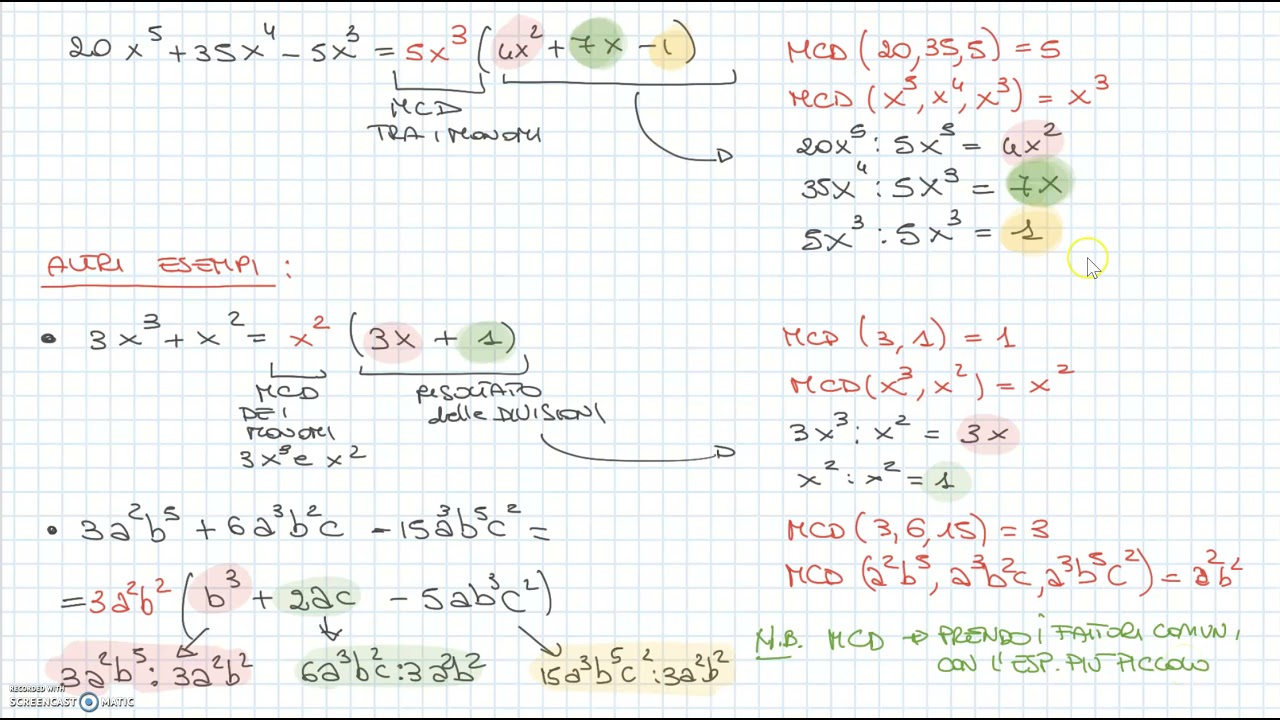 20x⁵ + 35x⁴ - 5x³ = 5x³ (4x² + 7x - 1)
MCD
TRA I MONOMI
MCD (20, 35, 5) = 5
MCD (x⁵, x⁴, x³) = x³
20x⁵ : 5x³ = 4x²
35x⁴ : 5x³ = 7x
5x³ : 5x³ = 1
ALTRI ESEMPI :
• 3x³ + x² = x² (3x + 1)
MCD
DEI
MONOMI
3x³ e x²
RISULTATO
delle DIVISIONI
MCD (3, 1) = 1
MCD (x³, x²) = x²
3x³ : x² = 3x
x² : x² = 1
• 3a²b⁵ + 6a³b²c - 15a³b⁵c² =
= 3a²b² (b³ + 2ac - 5ab³c²)
3a²b⁵ : 3a²b² 6a³b²c : 3a²b² 15a³b⁵c² : 3a²b²
MCD (3, 6, 15) = 3
MCD (a²b⁵, a³b²c, a³b⁵c²) = a²b²
N.B. MCD → PRENDO i FATTORI COMUNI
CON L'ESP. PIÙ PICCOLO
RECORDED WITH
SCREENCAST MATIC